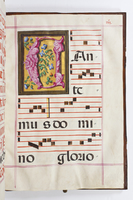 An
te
mus do mi
no glorio